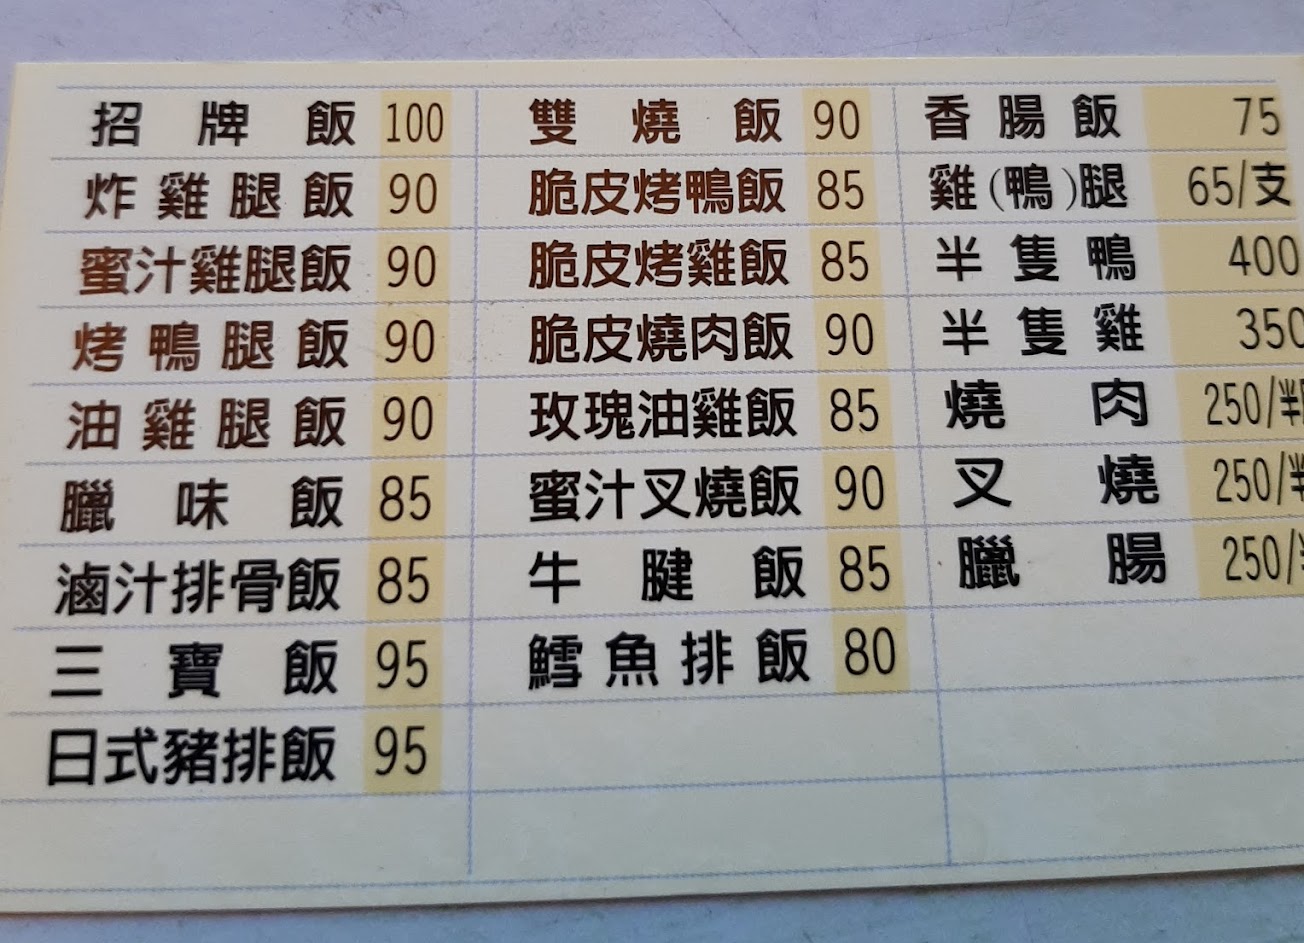 招牌飯 100
炸雞腿飯 90
蜜汁雞腿飯 90
烤鴨腿飯 90
油雞腿飯 90
臘味飯 85
滷汁排骨飯 85
三寶飯 95
日式豬排飯 95
雙燒飯 90
脆皮烤鴨飯 85
脆皮烤雞飯 85
脆皮燒肉飯 90
玫瑰油雞飯 85
蜜汁叉燒飯 90
牛腱飯 85
鱈魚排飯 80
香腸飯 75
雞(鴨)腿 65/支
半隻鴨 400
半隻雞 350
燒肉 250/半
叉燒 250/半
臘腸 250/